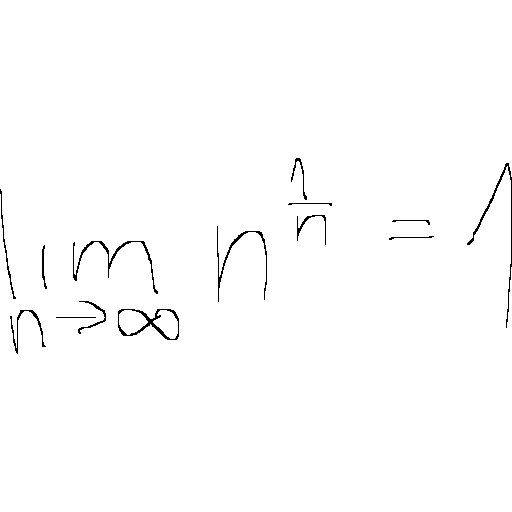 \lim_{n \to \infty} n^{\frac{1}{n}} = 1